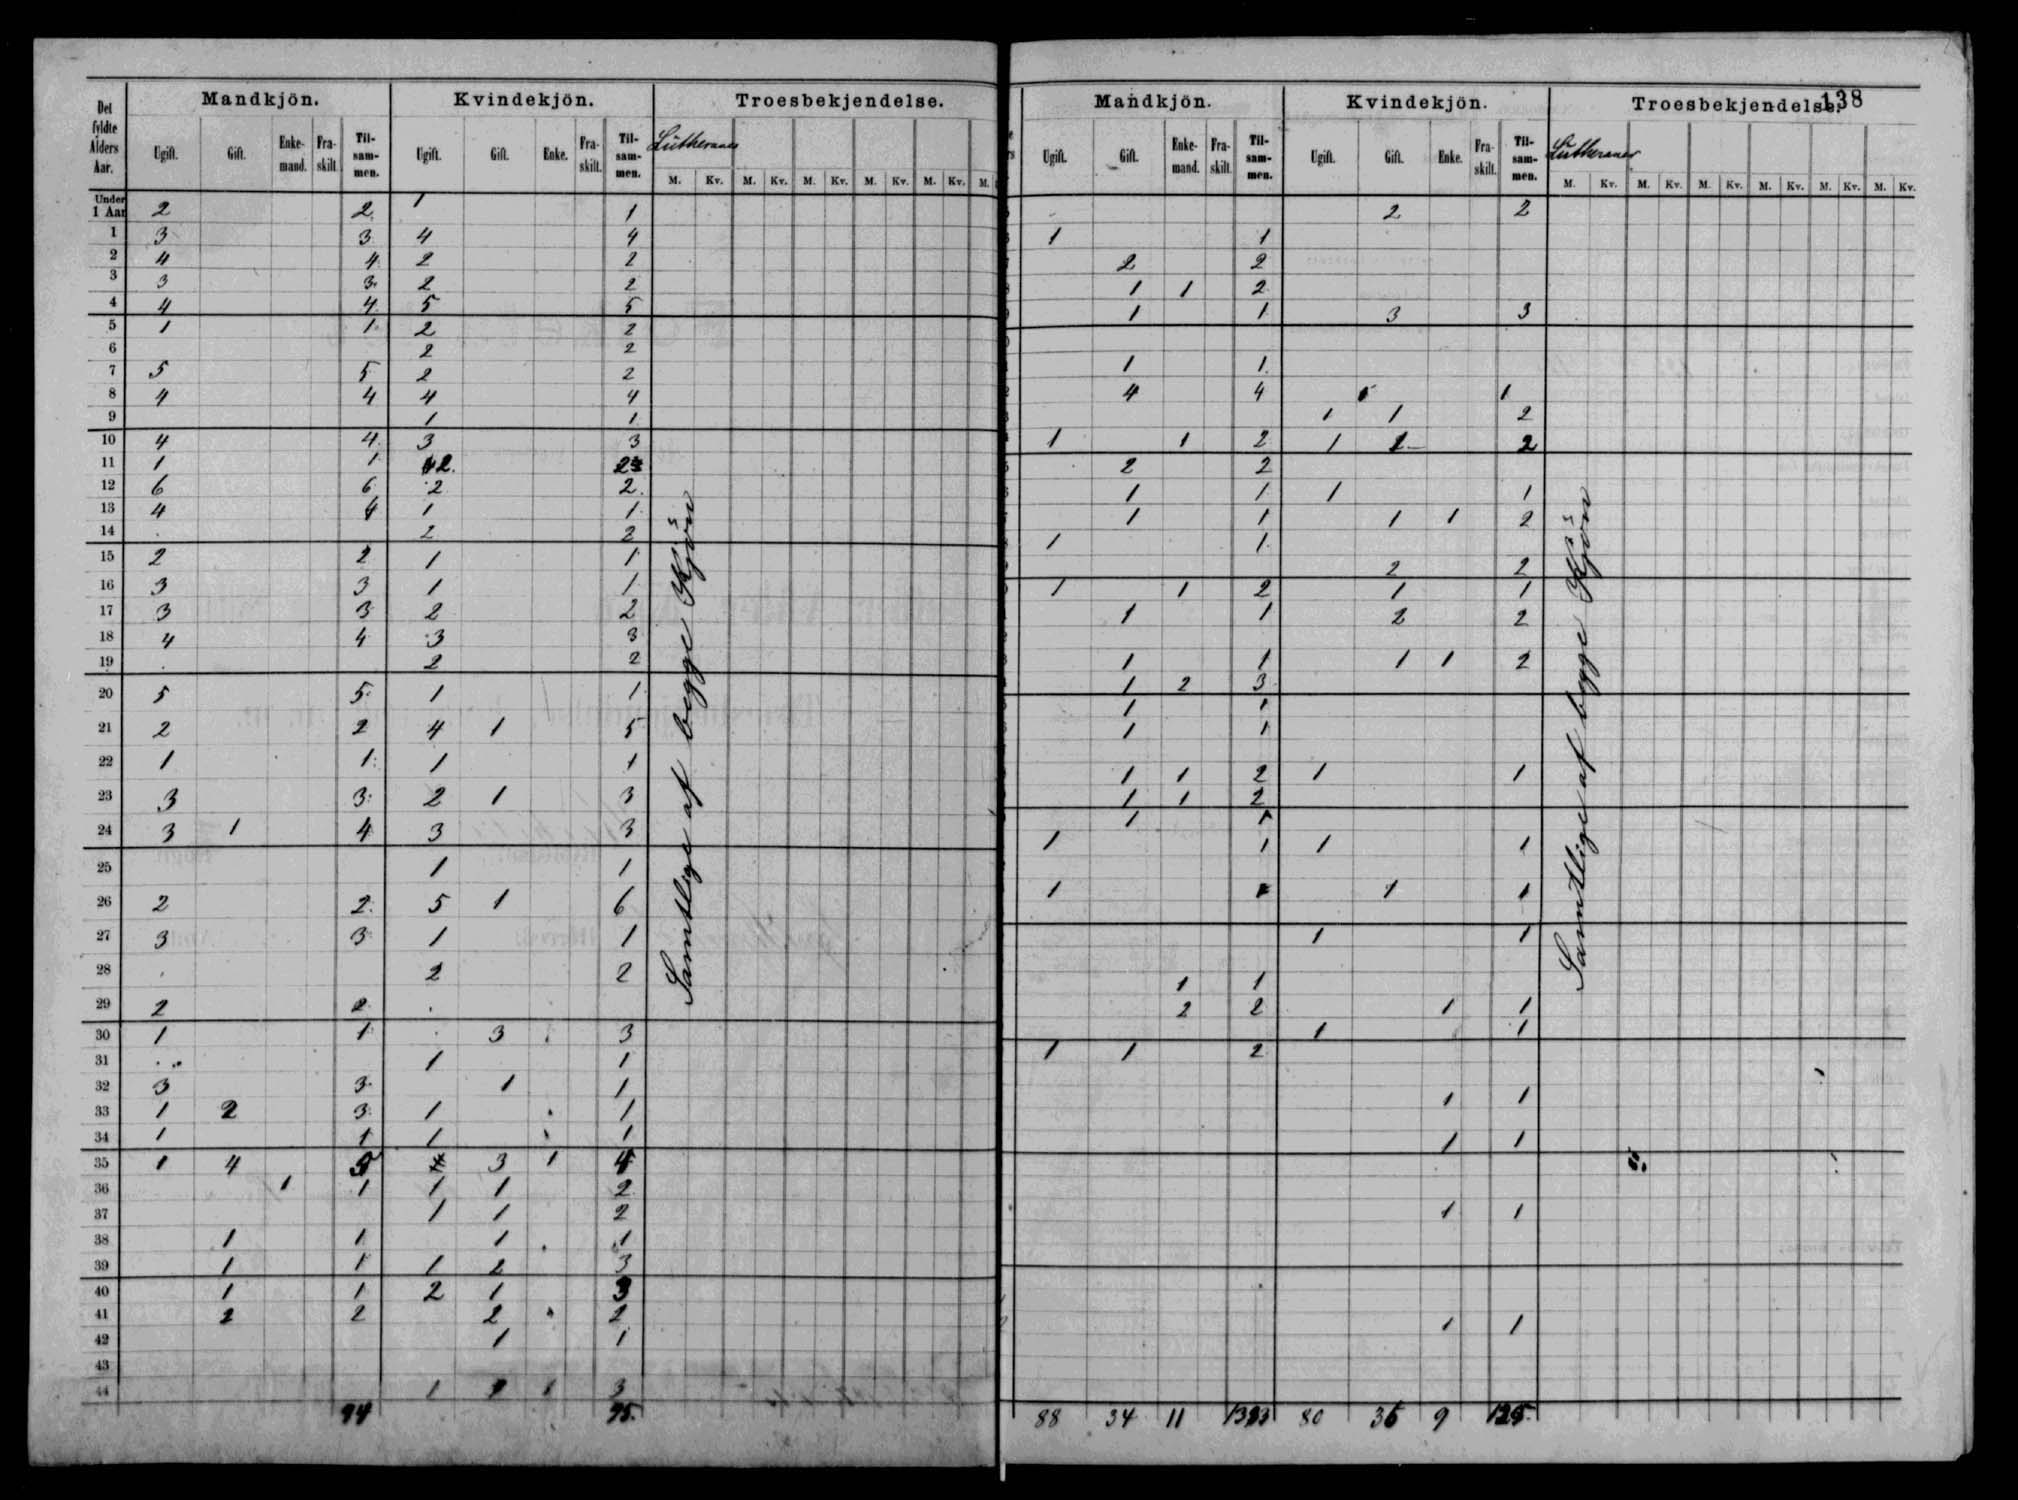 138
Det fyldte Alders Aar. Mandkjön. Kvindekjön. Troesbekjendelse.
Ugift. Gift. Enke-mand. Fra-skilt. Til-sam-men. Ugift. Gift. Enke. Fra-skilt. Til-sam-men. Lutheraner
M. Kv. M. Kv. M. Kv. M. Kv. M. Kv. M.
Under 1 Aar 2 2 1 1
1 3 3 4 4
2 4 4 2 2
3 3 3 2 2
4 4 4 5 5
5 1 1 2 2
6 2 2
7 5 5 2 2
8 4 4 4 4
9 1 1
10 4 4 3 3
11 1 1 2 2
12 6 6 2 2
13 4 4 1 1
14 2 2
15 2 2 1 1
16 3 3 1 1
17 3 3 2 2
18 4 4 3 3
19 2 2
20 5 5 1 1
21 2 2 4 1 5
22 1 1 1 1
23 3 3 2 1 3
24 3 1 4 3 3
25 1 1
26 2 2 5 1 6
27 3 3 1 1
28 2 2
29 2 2
30 1 1 3 3
31 1 1
32 3 3 1 1
33 1 2 3 1 1
34 1 1 1 1
35 1 4 5 3 1 4
36 1 1 1 1 2
37 1 1 2
38 1 1 1 1
39 1 1 1 2 3
40 1 1 2 1 3
41 2 2 2 2
42 1 1
43
44 1 1 1 3
94 95.
Samtlige af begge Kjön
Mandkjön. Kvindekjön. Troesbekjendelse.
Ugift. Gift. Enke-mand. Fra-skilt. Til-sam-men. Ugift. Gift. Enke. Fra-skilt. Til-sam-men. Lutheraner
M. Kv. M. Kv. M. Kv. M. Kv. M. Kv. M. Kv.
2 2
1 1
2 2
1 1 2
1 1 3 3
1 1
4 4 1
1 1 2
1 1 2 1 1 2
2 2
1 1 1 1
1 1 1 1 2
1 1
2 2
1 1 2 1 1
1 1 2 2
1 1 1 1 2
1 2 3
1 1
1 1
1 1 2 1 1
1 1 2
1 1
1 1 1 1
1 1 1 1
1 1
1 1
2 2 1 1
1 1
1 1 2
1 1
1 1
1 1
1 1
88 34 11 133 80 36 9 125
Samtlige af begge Kjön